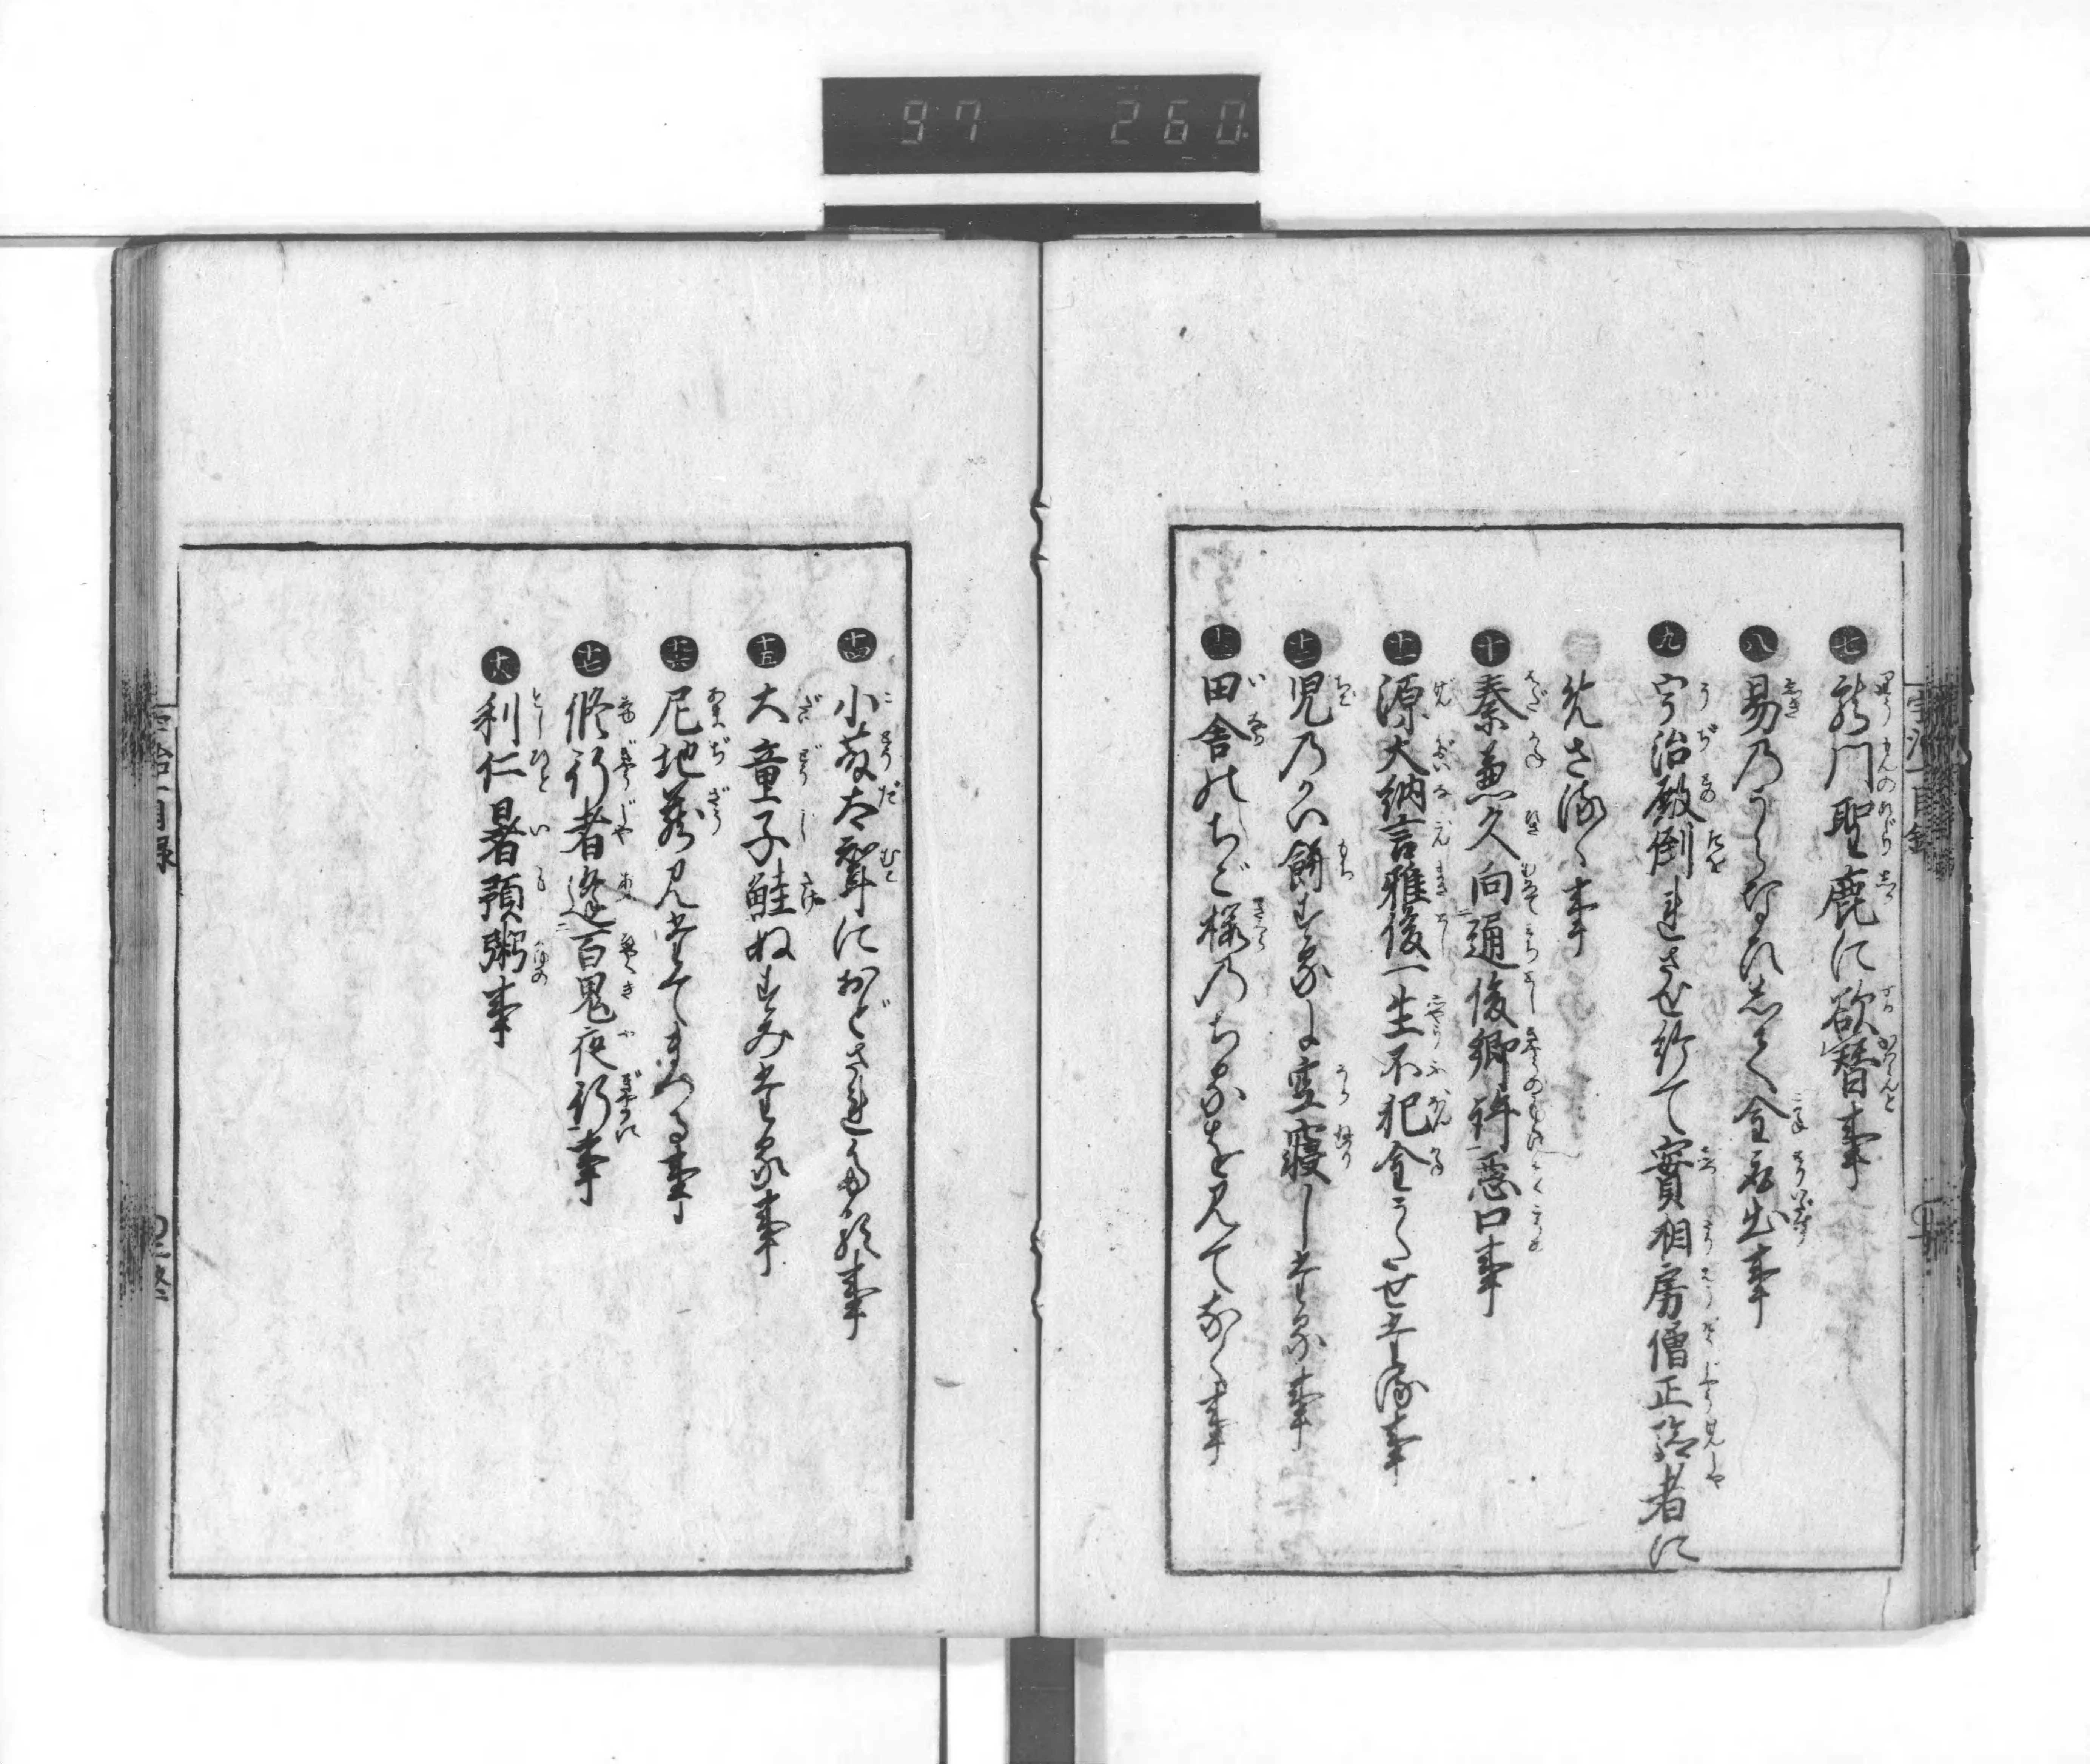 97 260
七 龍門聖鹿に欲替事
八 易のうらなひして金取出事
九 宇治殿倒れさせ給て實相房僧正驗者に
めさるゝ事
十 秦兼久向通俊卿許惡口事
十一 源大納言雅俊一生不犯金うたせたる事
十二 児のかい餅するに空寝したる事
十三 田舎のちご桜のちるを見てなく事
宇治一目録
十四 小藤太聟におどされたる事
十五 大童子鮭ぬすみたる事
十六 尼地蔵見たてまつる事
十七 修行者逢百鬼夜行事
十八 利仁暑預粥事
宇治一目録